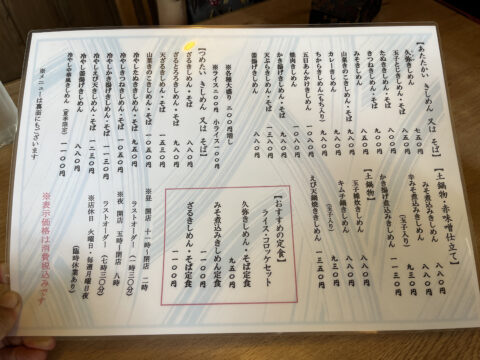 【あたたかい きしめん 又は そば】
久弥きしめん・そば 七五〇円
玉子とじきしめん・そば
たぬききしめん・そば
きつねきしめん・そば
みそきしめん
山菜きのこきしめん・そば
カレーきしめん
ちからきしめん(もち入り)
五目あんかけきしめん
焼肉きしめん
かき揚げきしめん・そば
天ぷらきしめん・そば
釜揚げきしめん 八八〇円
※各種大盛り 二〇〇円増し
※ライス二〇〇円 小ライス
【つめたい きしめん 又は そば】
ざるきしめん・そば 八八〇円
ざるとろろきしめん・そば
天ざるきしめん・そば 一五三〇円
山菜きのこきしめん・そば 一〇五〇円
冷やしたぬききしめん・そば 九五〇円
冷やしきつねきしめん・そば 一〇五〇円
冷やしかき揚げきしめん・そば 一二三〇円
冷やしえび天きしめん・そば 一三八〇円
冷やし釜揚げきしめん 八八〇円
冷やし中華風きしめん(夏季限定) 一一〇〇円
※メニューは裏面にもございます
【土鍋物・赤味噌仕立て】
みそ煮込みきしめん 八八〇円
辛みそ煮込みきしめん 八八〇円
かき揚げ煮込みきしめん
(玉子入り) 一一三〇円
【土鍋物】
玉子雑炊きしめん 八八〇円
キムチ鍋きしめん
(玉子入り)
えび天鍋焼ききしめん 一三五〇円
【おすすめの定食】
ライス・コロッケセット
久弥きしめん・そば定食 九五〇円
みそ煮込みきしめん定食 一一〇〇円
ざるきしめん・そば定食 一一〇〇円
※昼 開店 十一時〜閉店 二時
ラストオーダー(一時三〇分)
※夜 開店 五時〜閉店 八時
ラストオーダー(七時三〇分)
※店休日 火曜日・毎週月曜日夜
(臨時休業あり)
※表示価格は消費税込みです